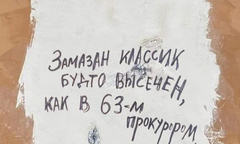 Замазан классик
будто высечен,
как в 63-м
прокурором